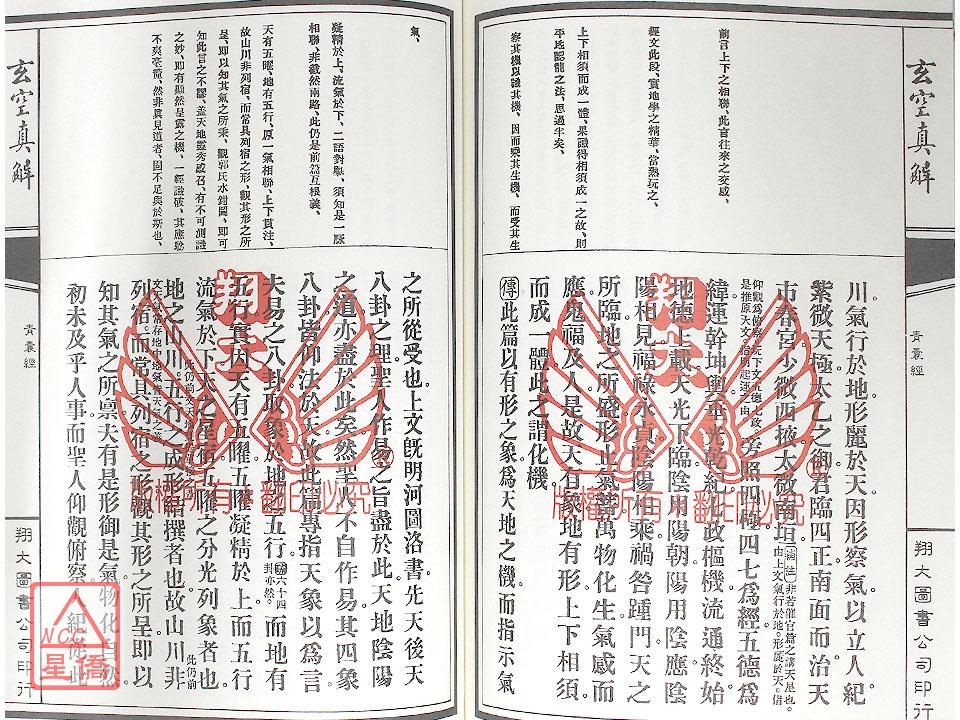 玄空真解
青囊經
翔大圖書公司印行
前言上下之相聯、此言往來之交感、
經文此段、實地學之精華、當熟玩之、
上下相須而成一體、果識得相須成一之故、則
平生認龍之法、思過半矣、
察其機以識其機、因而乘其生機、而受其生
川氣行於地形麗於天因形察氣以立人紀
紫微天極太乙之御君臨四正南面而治天
市春宮少微西掖太微南垣
補註 非若催官篇之講天星也。
由上文氣行於地。形麗於天。借
旁照四極四七為經五德為
緯運幹坤輿垂光乾紀七政樞機流通終始
地德上載天光下臨陰用陽朝陽用陰應陰
陽相見福祿永貞陰陽相乘禍咎踵門天之
所臨地之所盛形止氣蓄萬物化生氣感而
應鬼福及人是故天有象地有形上下相須
而成一體此之謂化機
傳此篇以有形之象為天地之機而指示氣
玄空真解
青囊經
翔大圖書公司印行
氣、
凝精於上、流氣於下、二語對舉、須知是一脈
相聯、非截然兩路、此仍是前篇互根義、
天有五曜、地有五行、原一氣相聯、上下貫注、
故山川非列宿、而常具列宿之形、觀其形之所
呈、即以知其氣之所稟、觀郭氏水鉗圖、即可
知此言之不謬、蓋天地靈秀感召、有不可測識
之妙、即有顯然呈露之機、一經識破、其應驗
不爽毫釐、然非真見道者、固不足與於斯也、
之所從受也上文既明河圖洛書先天後天
八卦之理聖人作易之旨盡於此天地陰陽
之道亦盡於此矣然聖人不自作易其四象
八卦皆仰法於天故此篇專指天象以為言
夫易之八卦取象於地之五行
六十四
卦亦然。
而地有
五行實因天有五曜五曜凝精於上而五行
流氣於下天之星宿五曜之分光列象者也
地之山川五行之成形結撰者也故山川非
此仍前
列宿而常具列宿之形觀其形之所呈即以
知其氣之所稟夫有是形御是氣物化自然
初未及乎人事而聖人仰觀俯察人紀從此
版權所有 翻印必究
版權所有 翻印必究
翔大
翔大
WCC
星僑